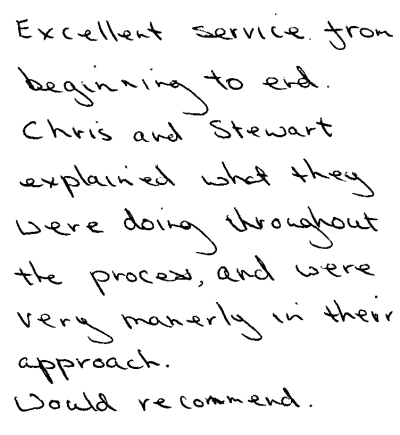 Excellent service from
beginning to end.
Chris and Stewart
explained what they
were doing throughout
the process, and were
very manerly in their
approach.
Would recommend.